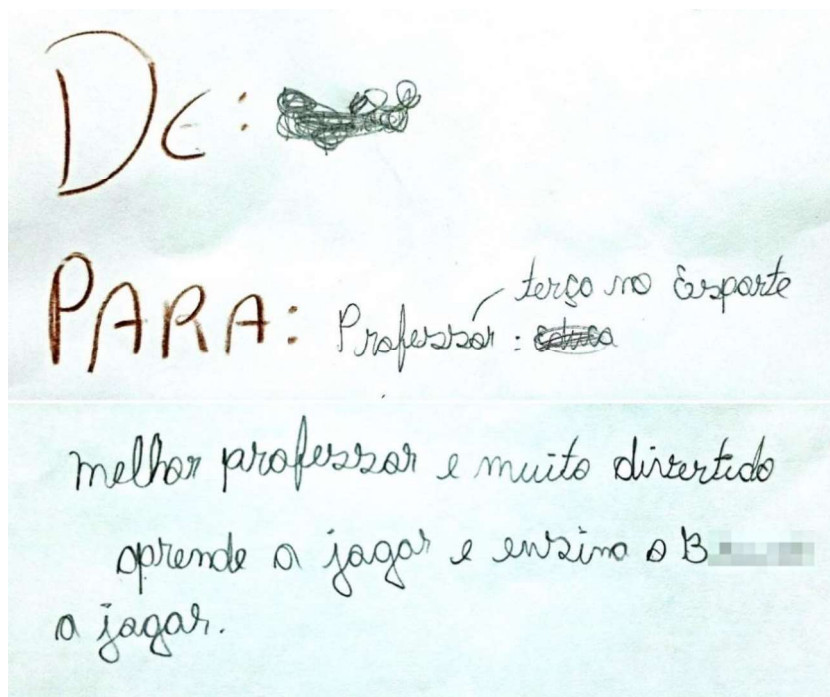 De:
terço no Esporte
PARA: Professor:
melhor professor e muito divertido
aprende a jogar e ensina o B
a jogar.